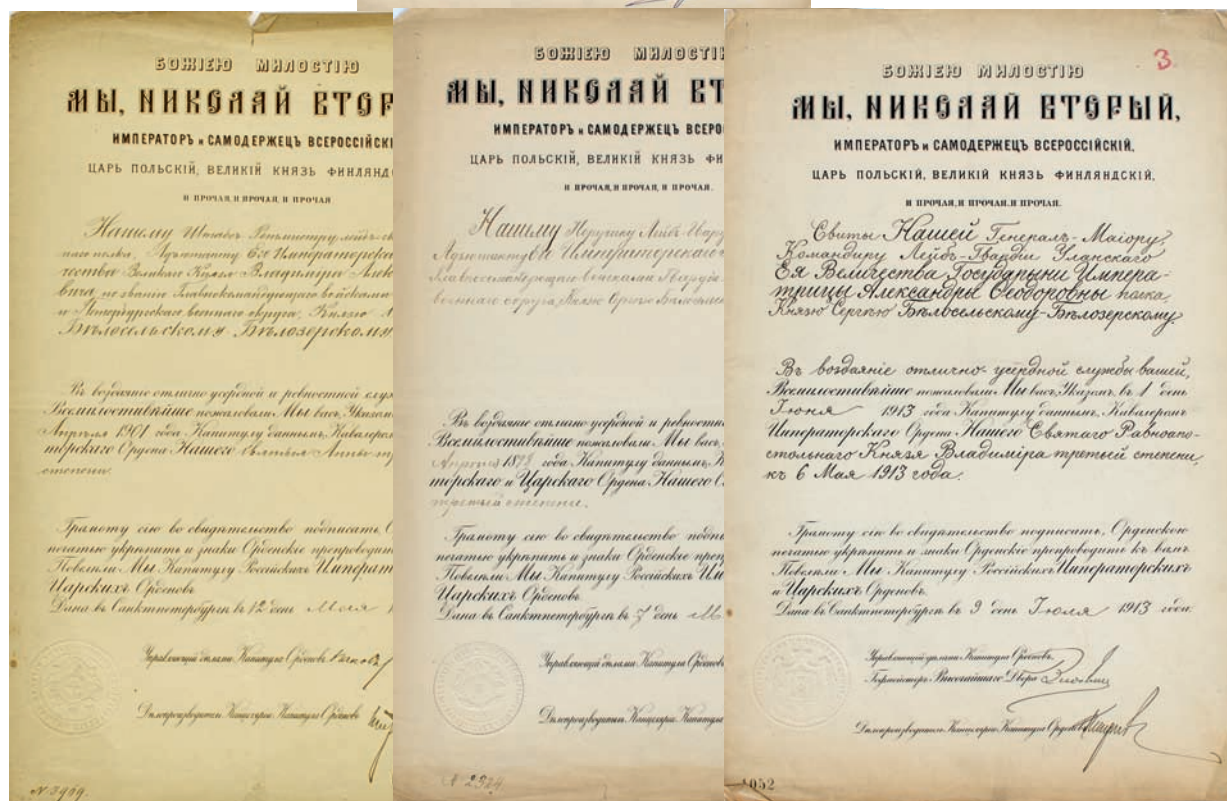 БОЖІЕЮ МИЛОСТІЮ
МЫ, НИКОЛАЙ ВТОР
ИМПЕРАТОРЪ и САМОДЕРЖЕЦЪ ВСЕРОССІЙСКІ
ЦАРЬ ПОЛЬСКІЙ, ВЕЛИКІЙ КНЯЗЬ ФИНЛЯНД
И ПРОЧАЯ, И ПРОЧАЯ, И ПРОЧАЯ
Нашему Штабсъ Ротмистру
полка, Адъютанту Его Императорска
Великаго Князя Владиміра
по званію Главнокомандующаго войсками
и Петербургскаго военнаго округа, Князю
Бѣлосельскому Бѣлозерскому
Въ воздаяніе отлично усердной и ревностной служ
Всемилостивѣйше пожаловали Мы васъ, Указомъ
Апрѣля 1901 года Капитулу даннымъ, Кавалеромъ
торскаго Ордена Нашего Святыя Анны
степени.
Грамоту сію во свидѣтельство подписать, О
печатью укрѣпить и знаки Орденскіе препроводить
Повелѣли Мы Капитулу Россійскихъ Императ
Царскихъ Орденовъ.
Дана въ Санктпетербургѣ въ 12 день Мая
Управляющій дѣлами Капитула Орденовъ
Дѣлопроизводитель Канцеляріи Капитула Орденовъ
N 3909.
БОЖІЕЮ МИЛОСТІ
МЫ, НИКОЛАЙ ВТ
ИМПЕРАТОРЪ и САМОДЕРЖЕЦЪ ВСЕРО
ЦАРЬ ПОЛЬСКІЙ, ВЕЛИКІЙ КНЯЗЬ ФИ
И ПРОЧАЯ, И ПРОЧАЯ, И ПРОЧАЯ.
Нашему Поручику Лейбъ Гвард
Адъютанту Императорскаго
Главнокомандующаго войсками Гвардіи
военнаго округа, Князю Сергѣю Бѣлосельс
Въ воздаяніе отлично усердной и ревностн
Всемилостивѣйше пожаловали Мы васъ,
Апрѣля года Капитулу даннымъ, К
торскаго и Царскаго Ордена Нашего С
третьей степени.
Грамоту сію во свидѣтельство подпи
печатью укрѣпить и знаки Орденскіе преп
Повелѣли Мы Капитулу Россійскихъ Им
Царскихъ Орденовъ.
Дана въ Санктпетербургѣ въ 7 день М
Управляющій дѣлами Капитула Орденовъ
Дѣлопроизводитель Канцеляріи Капитула
N
3.
БОЖІЕЮ МИЛОСТІЮ
МЫ, НИКОЛАЙ ВТОРЫЙ,
ИМПЕРАТОРЪ и САМОДЕРЖЕЦЪ ВСЕРОССІЙСКІЙ,
ЦАРЬ ПОЛЬСКІЙ, ВЕЛИКІЙ КНЯЗЬ ФИНЛЯНДСКІЙ,
И ПРОЧАЯ, И ПРОЧАЯ, И ПРОЧАЯ.
Свиты Нашей Генералъ-Маіору,
Командиру Лейбъ-Гвардіи Уланскаго
Ея Величества Государыни Импера-
трицы Александры Ѳеодоровны полка,
Князю Сергѣю Бѣлосельскому-Бѣлозерскому.
Въ воздаяніе отлично-усердной службы вашей,
Всемилостивѣйше пожаловали Мы васъ, Указомъ, въ 1 день
Іюня 1913 года Капитулу даннымъ, Кавалеромъ
Императорскаго Ордена Нашего Святаго Равноапо-
стольнаго Князя Владиміра третьей степени,
къ 6 Мая 1913 года.
Грамоту сію во свидѣтельство подписать, Орденскою
печатью укрѣпить и знаки Орденскіе препроводить къ вамъ
Повелѣли Мы Капитулу Россійскихъ Императорскихъ
и Царскихъ Орденовъ.
Дана въ Санктпетербургѣ въ 9 день Іюля 1913 года.
Управляющій дѣлами Капитула Орденовъ,
Гофмейстеръ Высочайшаго Двора
Дѣлопроизводитель Канцеляріи Капитула Орденовъ
1052